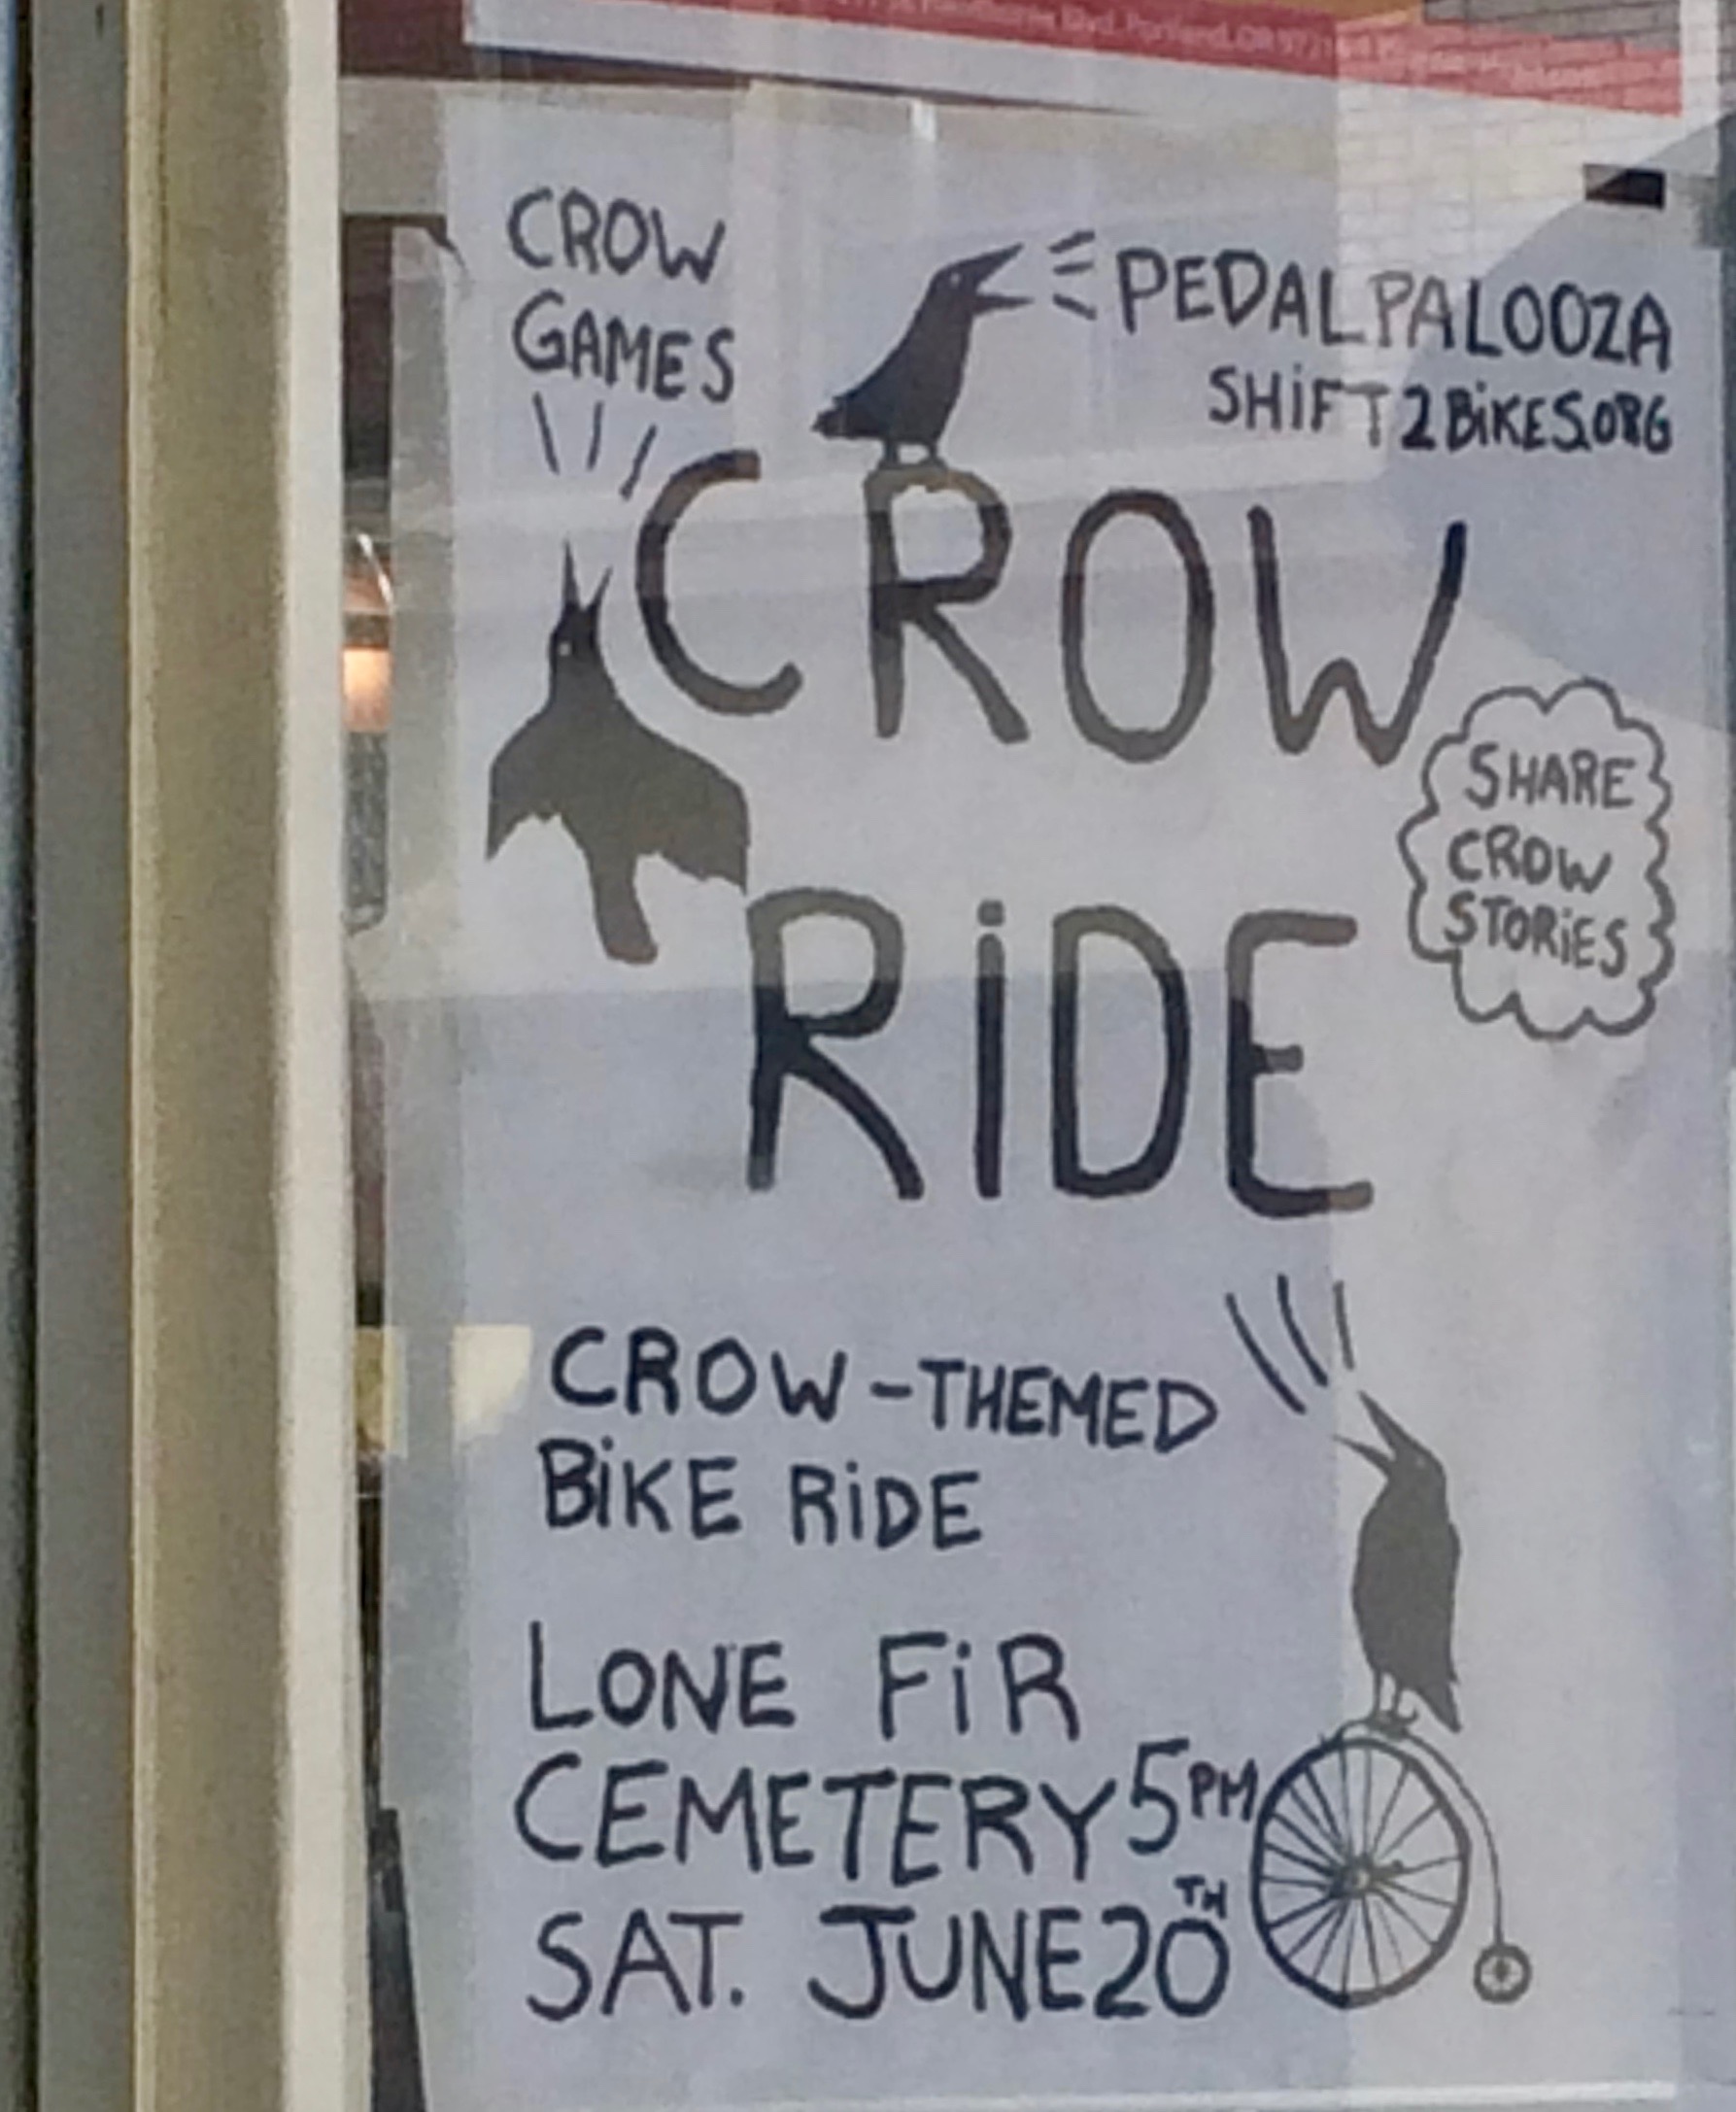 Blvd. Portland, OR 972
CROW
GAMES
PEDALPALOOZA
SHiFT2BiKES.ORG
CROW
RiDE
SHARE
CROW
STORiES
CROW-THEMED
BiKE RiDE
LONE FiR
CEMETERY 5PM
SAT. JUNE 20TH